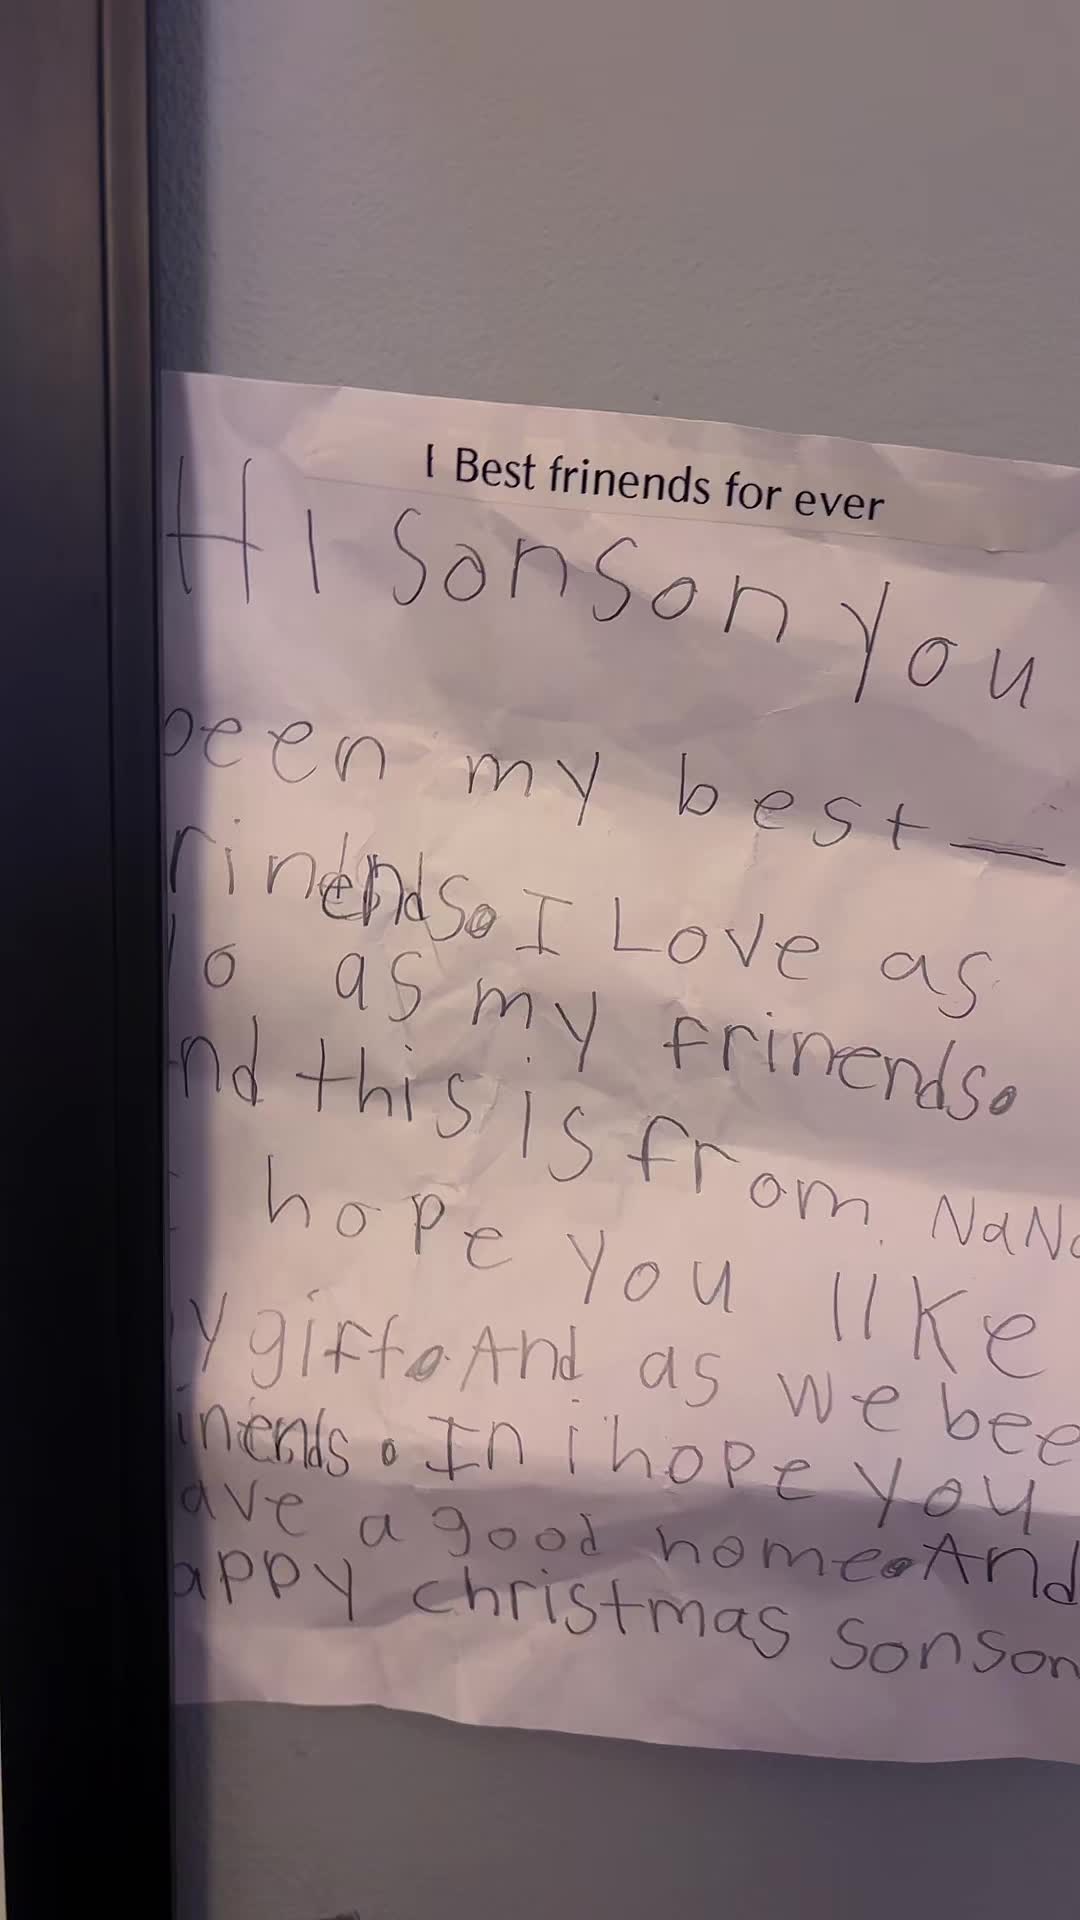 I Best frinends for ever
HI Sonson You
been my best
rinends. I Love as
o as my frinends.
nd this is from NaNa
hope You like
y gift. And as we bee
inends. In i hope you
ave a good home. And
appy christmas sonson